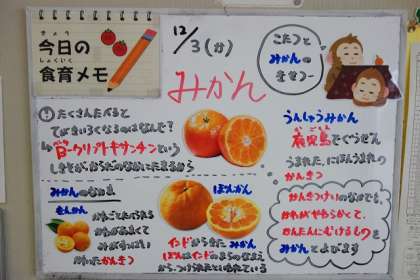 きょう
今日の
しょくいく
食育メモ
12/3(火)
みかん
こたつと
みかんの
きせつ〜
たくさんたべると
てがきいろくなるのはなんで?
β-クリプトキサンチンという
しきそがおうだのなかにたまるから
うんしゅうみかん
鹿児島でぐうぜん
うまれた、にほんうまれの
かんきつ
みかんのなかま
きんかん
かわごとたべられる
かわがあまくて
みがすっぱい
かわったかんきつ
ぽんかん
インドからきたみかん
ぽんはインドのまちのなまえ
からつけられたといわれている
かんきつけいのなかでも、
かわがやわらかくて、
かんたんにむけるものを
みかんとよびます